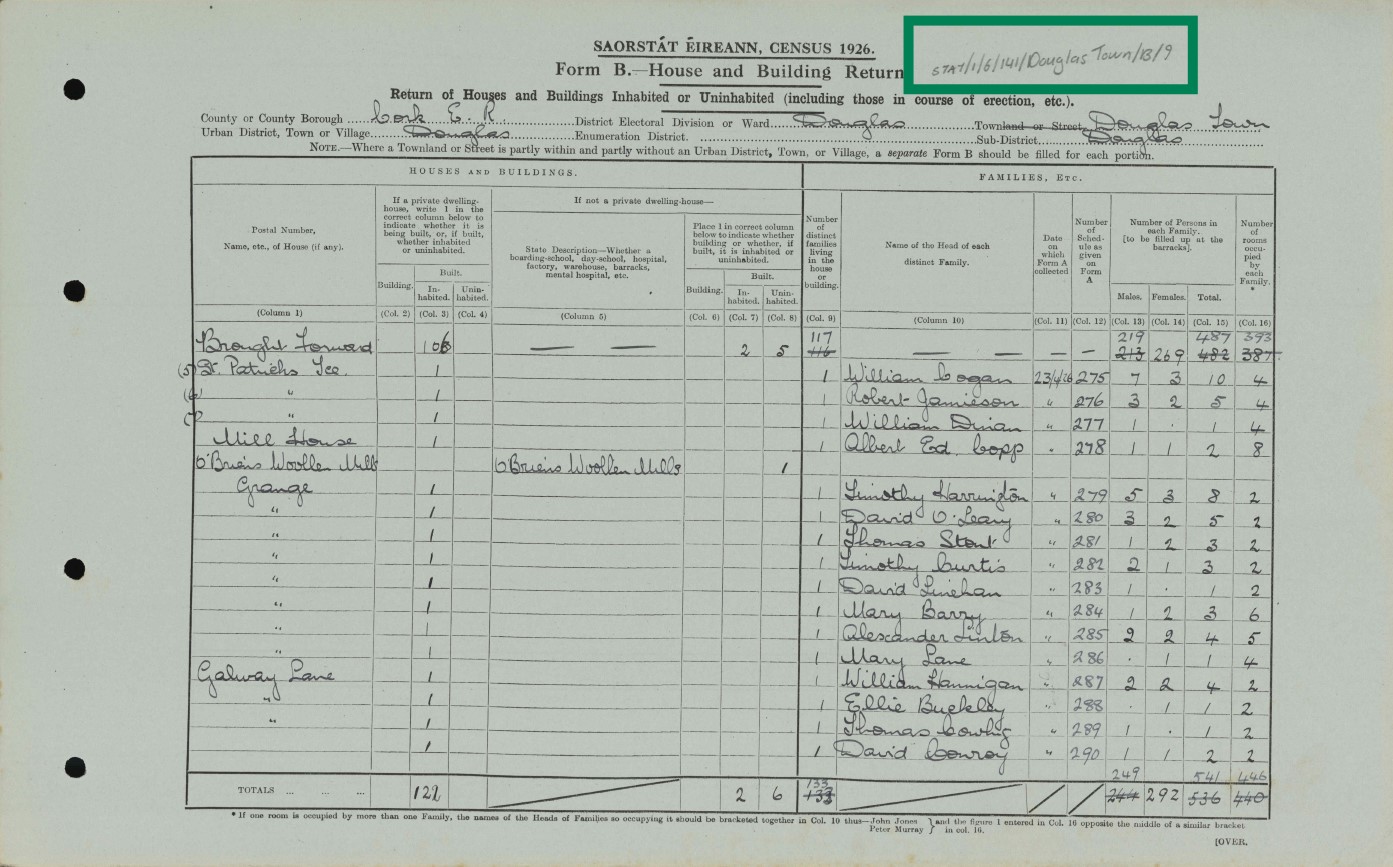 SAORSTÁT ÉIREANN, CENSUS 1926.
STAT/1/6/141/Douglas Town/B/9
Form B.—House and Building Return
Return of Houses and Buildings Inhabited or Uninhabited (including those in course of erection, etc.).
County or County Borough Cork E. R. District Electoral Division or Ward Douglas Townland or Street Douglas Town
Urban District, Town or Village Douglas Enumeration District. Sub-District Douglas
NOTE.—Where a Townland or Street is partly within and partly without an Urban District, Town, or Village, a separate Form B should be filled for each portion.
HOUSES AND BUILDINGS. FAMILIES, ETC.
Postal Number, Name, etc., of House (if any).
If a private dwelling-house, write 1 in the correct column below to indicate whether it is being built, or, if built, whether inhabited or uninhabited.
Building. Built. In-habited. Unin-habited.
If not a private dwelling-house—
State Description—Whether a boarding-school, day-school, hospital, factory, warehouse, barracks, mental hospital, etc.
Place 1 in correct column below to indicate whether building or whether, if built, it is inhabited or uninhabited.
Building. Built. In-habited. Unin-habited.
Number of distinct families living in the house or building.
Name of the Head of each distinct Family.
Date on which Form A collected
Number of Sched-ule as given on Form A
Number of Persons in each Family. [to be filled up at the barracks].
Males. Females. Total.
Number of rooms occu-pied by each Family. *
(Column 1) (Col. 2) (Col. 3) (Col. 4) (Column 5) (Col. 6) (Col. 7) (Col. 8) (Col. 9) (Column 10) (Col. 11) (Col. 12) (Col. 13) (Col. 14) (Col. 15) (Col. 16)
117 219 487 393
Brought Forward 106 — — 2 5 116 — — — — 213 269 482 387
(5) St. Patricks Tce. 1 1 William Cogan 23/4/26 275 7 3 10 4
(6) " 1 1 Robert Jamieson " 276 3 2 5 4
(7) " 1 1 William Dinan " 277 1 . 1 4
Mill House 1 1 Albert Ed. Copp " 278 1 1 2 8
O'Briens Woollen Mills O'Briens Woollen Mills 1
Grange 1 1 Timothy Harrington " 279 5 3 8 2
" 1 1 David O'Leary " 280 3 2 5 2
" 1 1 Thomas Stout " 281 1 2 3 2
" 1 1 Timothy Curtis " 282 2 1 3 2
" 1 1 David Linehan " 283 1 . 1 2
" 1 1 Mary Barry " 284 1 2 3 6
" 1 1 Alexander Linton " 285 2 2 4 5
" 1 1 Mary Lane " 286 . 1 1 4
Galway Lane 1 1 William Hannigan " 287 2 2 4 2
" 1 1 Ellie Buckley " 288 . 1 1 2
" 1 1 Thomas Cowhig " 289 1 . 1 2
1 1 David Conroy " 290 1 1 2 2
133 249 541 446
TOTALS ... ... ... 122 2 6 133 244 292 536 440
* If one room is occupied by more than one Family, the names of the Heads of Families so occupying it should be bracketed together in Col. 10 thus—John Jones } and the figure 1 entered in Col. 16 opposite the middle of a similar bracket
Peter Murray } in col. 16.
[OVER.